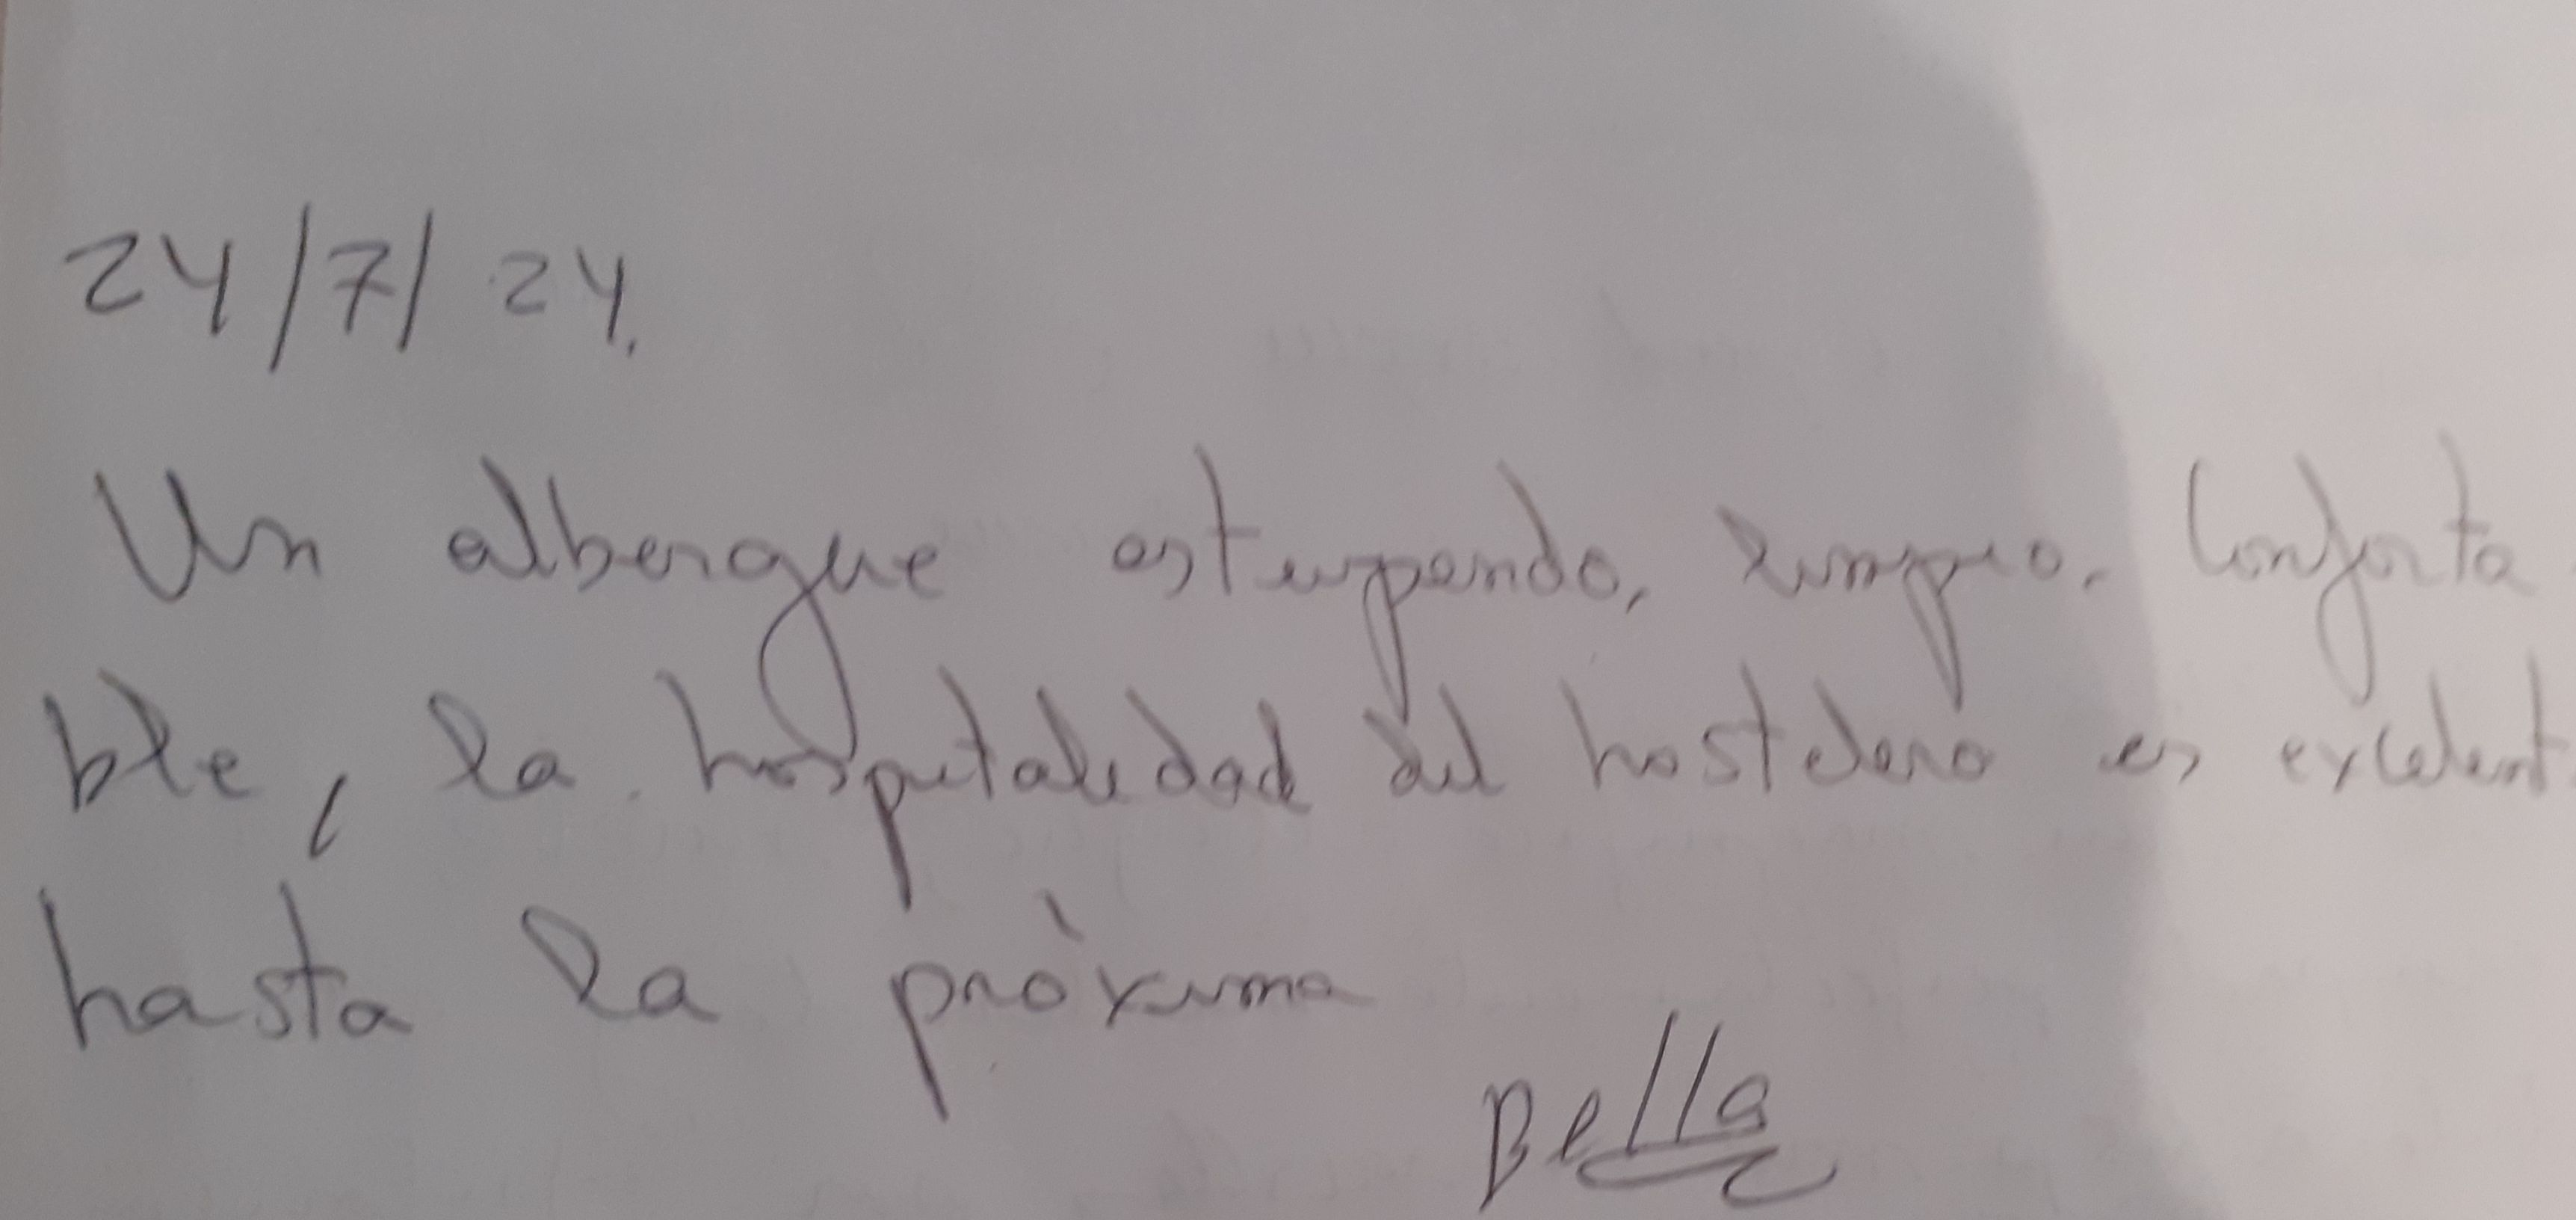 24/7/24.
Un albergue estupendo, limpio. Conforta
ble, la hospitalidad del hostelero es excelent
hasta la pròxima
Bella